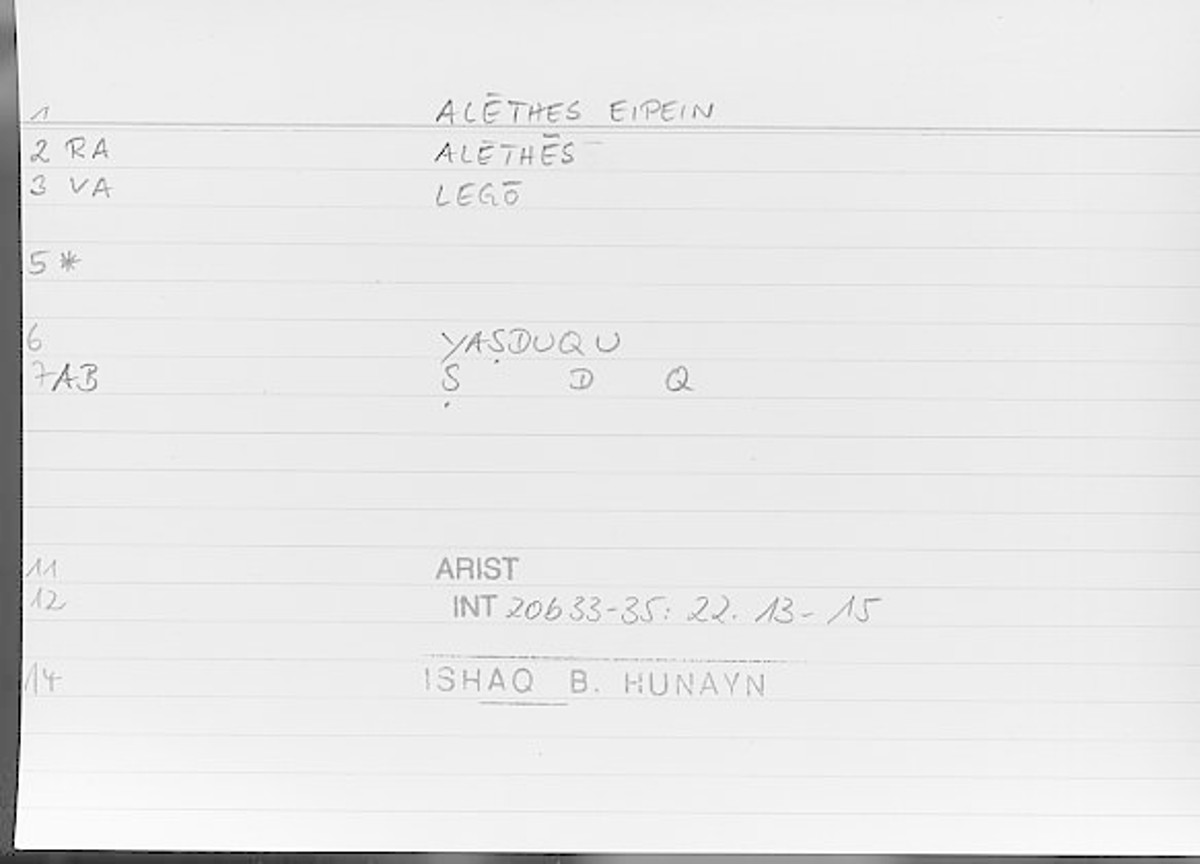 1 ALĒTHES EIPEIN
2 RA ALĒTHĒS
3 VA LEGŌ
5 *
6 YAṢDUQU
7 AB Ṣ D Q
11 ARIST
12 INT 20b 33-35: 22. 13-15
14 ISHAQ B. HUNAYN